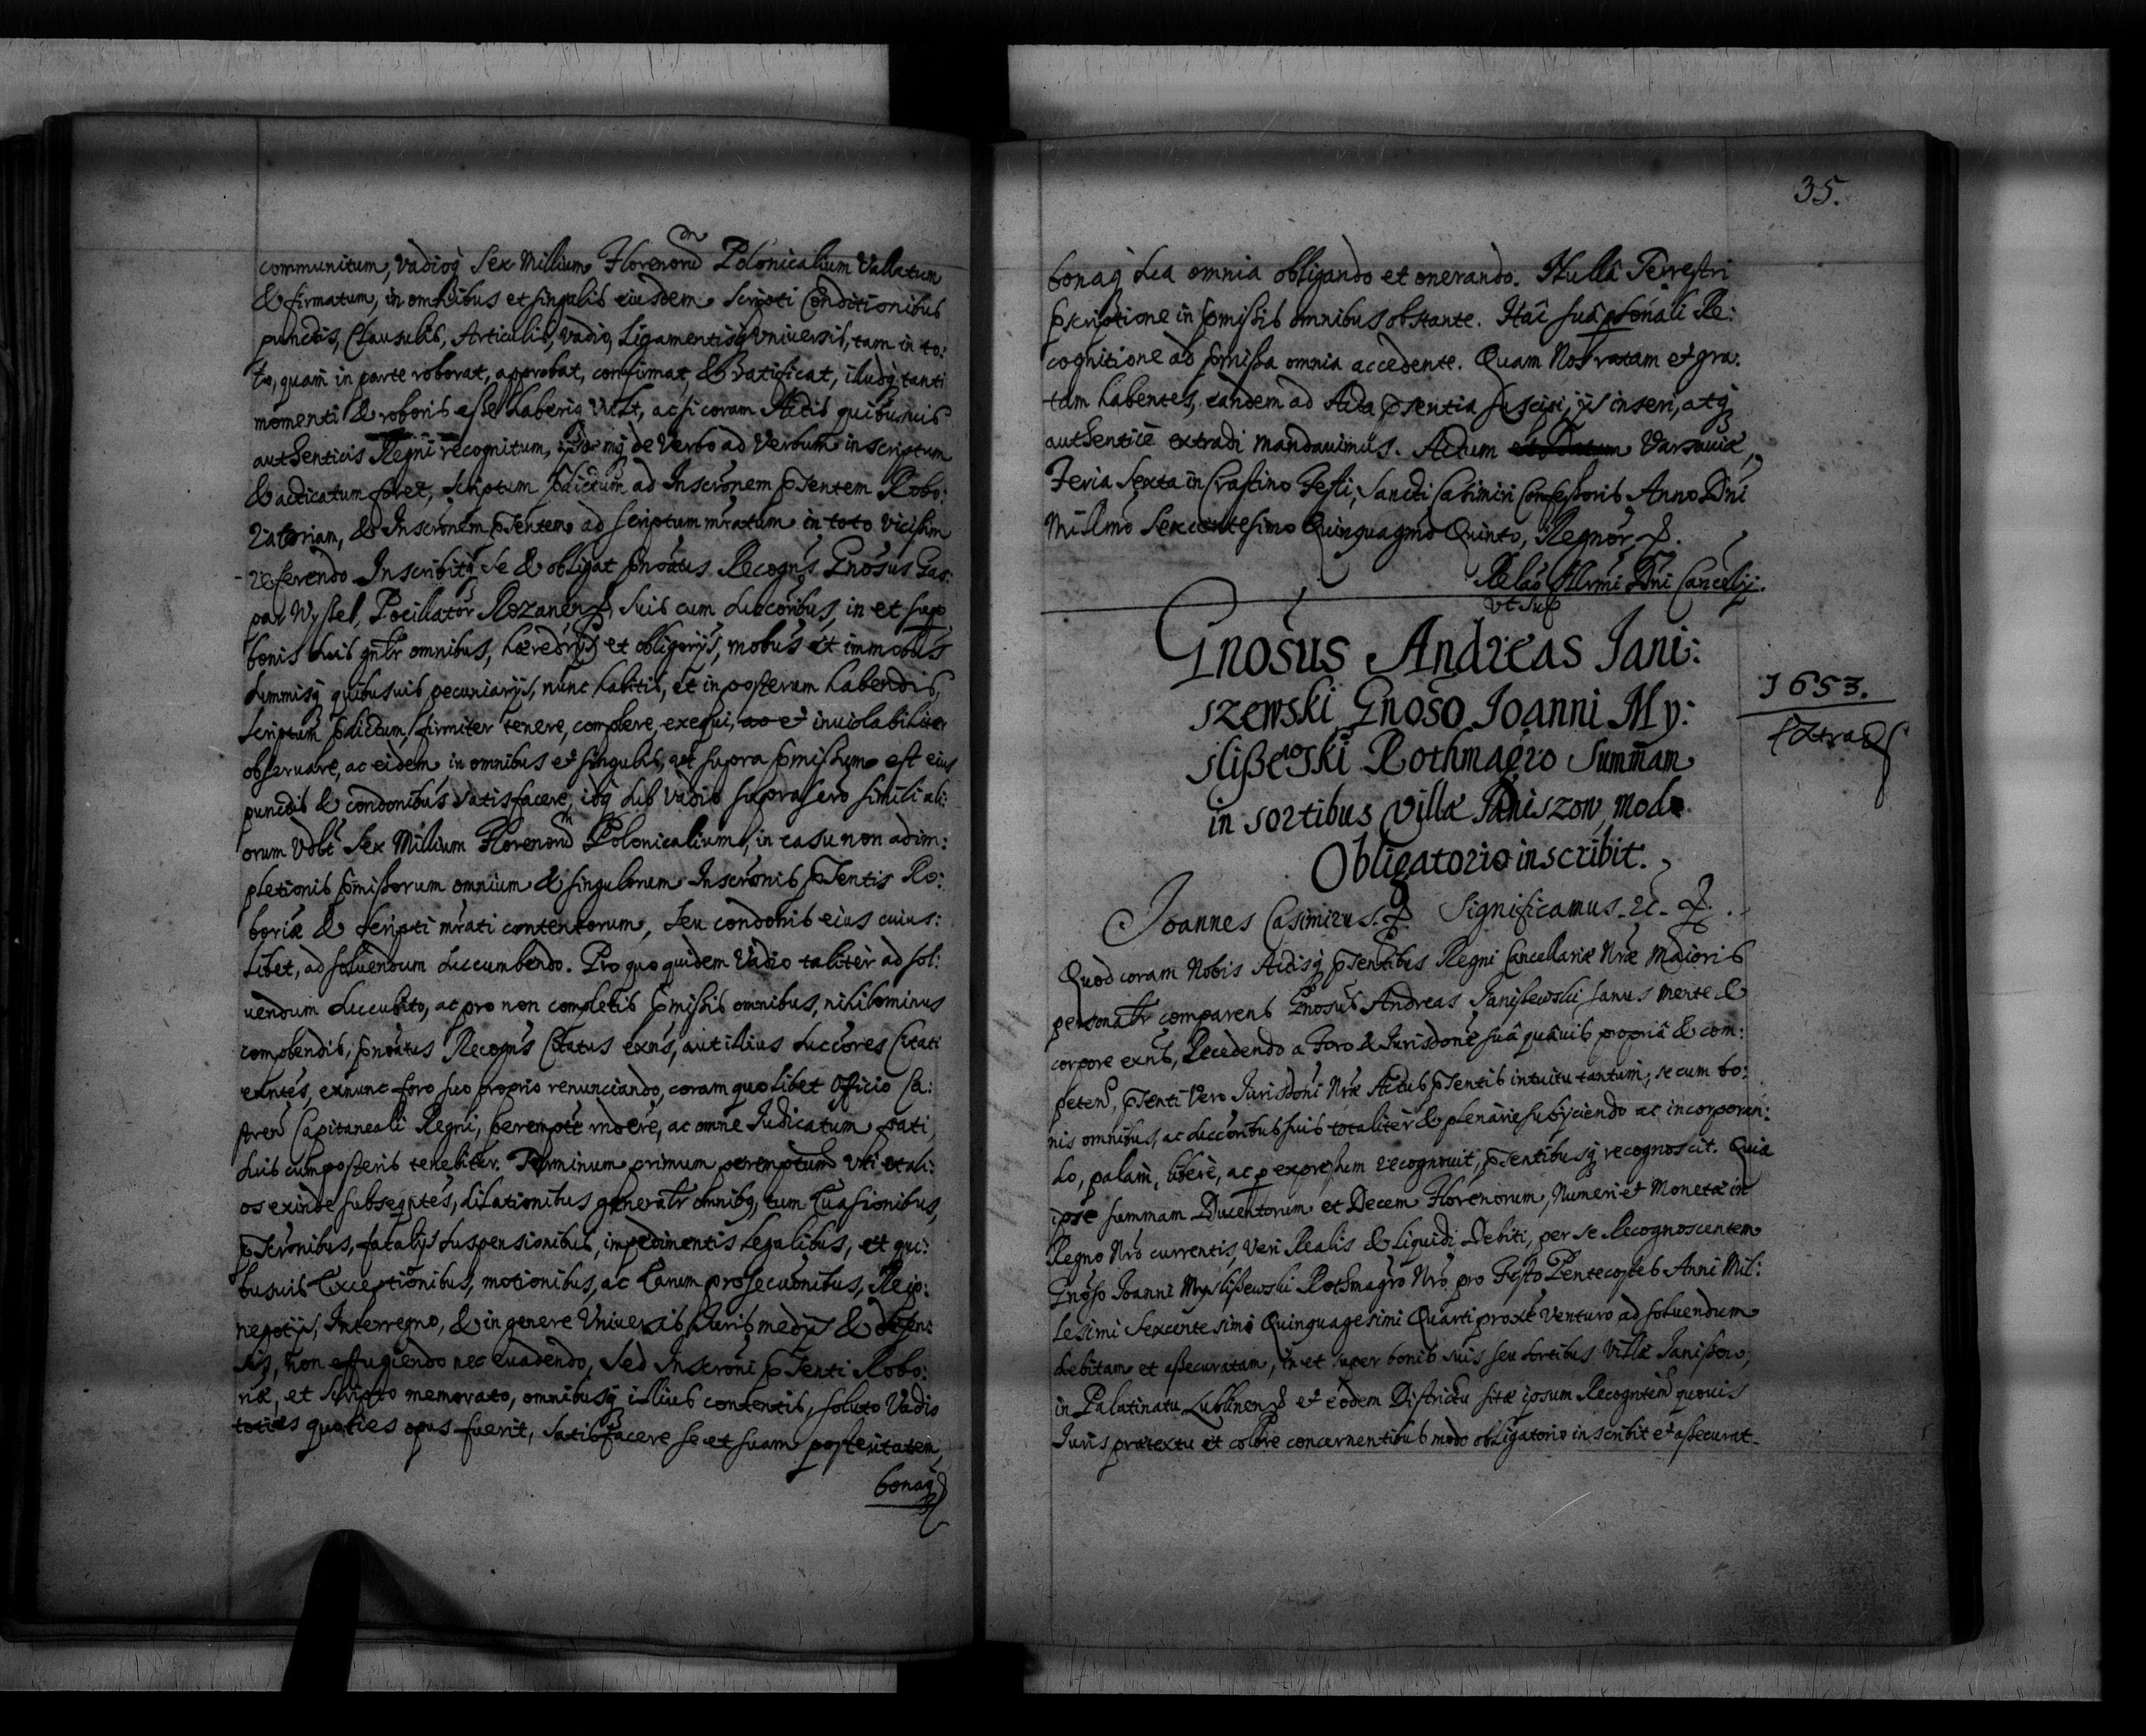 communitum, Vadioq Sex Millium Florenorũ Polonicalium Vallatum
& firmatum, in omnibus et singulis eiusdem Scripti Conditionibus
punctis, Clausulis, Articulis, Vadio, Ligamentisq Vniuersis, tam in to:
to, quam in parte roborat, approbat, confirmat, & ratificat, illudq tanti
momenti & roboris esse haberiq Vult, acsi coram Actis quibusuis
authenticis Regni recognitum, de Verbo ad Verbum inscriptum
& acticatum foret, scriptum pdictum ad Inscrõnem pntem Robo:
ratoriam, & Inscrõnem pntem ad scriptum mratum in toto vicissim
referendo Inscribitq Se & obligat pnoatus Recogns Gnosus Gas:
par Wyssel, Pocillator Rozanen, Suis cum succoribus, in et sup
bonis suis gnlr omnibus, hæredrijs et obligorijs, mobus et immobus
summisq quibusuis pecuniarijs, nunc habitis, et in posterum habendis,
scriptum pdictum, firmiter tenere, complere, exequi, ac et inuiolabiliter
obseruare, ac eidem in omnibus et singulis, vt supra pmissum est eius
punctis & condonibus satisfacere, idq sub Vadio suprascro simili ali:
orum Vdlt Sex Millium Florenorũ Polonicalium, in casu non adim:
pletionis pmissorum omnium & singulorum Inscronis pntis Ro:
boriæ & scripti mrati contentorum, seu condonis eius cuius:
libet, ad soluendum succumbendo. Pro quo quidem Vadio taliter ad sol:
uendum succubito, ac pro non completis pmissis omnibus, nihilominus
complendis, pnoatus Recogns Citatus exns, aut illius succores Citati
exntes, exnunc foro suo proprio renunciando, coram quolibet Officio Ca:
stren Capitaneali Regni, perempte rndere, ac omne Iudicatum pati,
suis cum posteris tenebitur. Terminum primum peremptum Vti et ali:
os exinde subseqntes, dilationibus generalr omnibq, tum Euasionibus,
pscronibus, fatalijs suspensionibus, impedimentis legalibus, et qui:
busuis Exceptionibus, motionibus, ac Earum prosecuonibus, Reip:
negotijs, Interregno, & in genere Vniuersis Iuris medijs & defen:
sis, non effugiendo nec euadendo, sed Inscroni pnti Robo:
riæ, et scripto memorato, omnibusq illius contentis, soluto Vadio
toties quoties opus fuerit, satisfacere se et suam posteritatem,
bonaq
35.
bonaq sua omnia obligando et onerando. Nulla Terrestri
pscriptione in pmissis omnibus obstante. Hac sua psonali Re:
cognitione ad pmissa omnia accedente. Quam Nos ratam et gra:
tam habentes, eandem ad Acta pntia suscipi, ijs inseri, atq
authentice extradi mandauimus. Actum et Datum Varsauiæ,
Feria Sexta in Crastino Festi, Sancti Casimiri Confessoris Anno Dni
Millmo Sexcentesimo Quinquagmo Quinto, Regnor.
Relao Illrmi Dni Cancellrij.
vt sup
Gnosus Andreas Iani:
szewski Gnoso Ioanni My:
slißewski Rothmagro Summam
in sortibus Villæ Janiszow, modo
Obligatorio inscribit.
1653.
Extrad
Joannes Casimirus. Significamus
Quod coram Nobis Actisq pntibus Regni Cancellariæ Nræ Maioris
personalr comparens Gnosus Andreas Janißewski sanus mente &
corpore exns, Recedendo a Foro & Iurisdone sua quauis propria & com:
peten, pnti Vero Iurisdoni Nræ Actus pntis intuitu tantum, se cum bo:
nis omnibus, ac succoribus suis totaliter & plenarie subijciendo ac incorporan:
do, palam, libere, ac p expressum recognouit, pntibusq recognoscit. Quia
ipse summam Ducentorum et Decem Florenorum, Numeri et Monetæ in
Regno Nro currentis, Veri Realis & Liquidi Debiti, per se Recognoscentem
Gnoso Ioanni Myslißewski Rothmagro Nro, pro Festo Pentecostes Anni Mil:
lesimi Sexcentesimi Quinquagesimi Quarti proxe venturo ad soluendum
debitam et assecuratam, in et super bonis suis seu sortibus Villæ Janißow,
in Palatinatu Lublinen et eodem Districtu sitæ ipsum Recogntem quouis
Iuris prætextu et colore concernentibus modo obligatorio inscribit et assecurat.